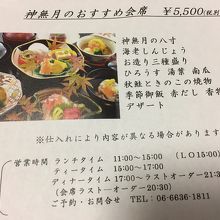 神無月のおすすめ会席 ¥5,500(税別)
神無月の八寸
海老しんじょう
お造り三種盛り
ひろうす 湯葉 南瓜
秋鮭ときのこの焼物
季節御飯 赤だし 香物
デザート
※仕入れにより内容が異なる場合があります
営業時間 ランチタイム 11:00~15:00 (LO15:00)
ティータイム 15:00~17:00
ディナータイム 17:00~ラストオーダー
(会席ラストーオーダー20:30)
ご予約・お問合せ TEL 06-6636-1811